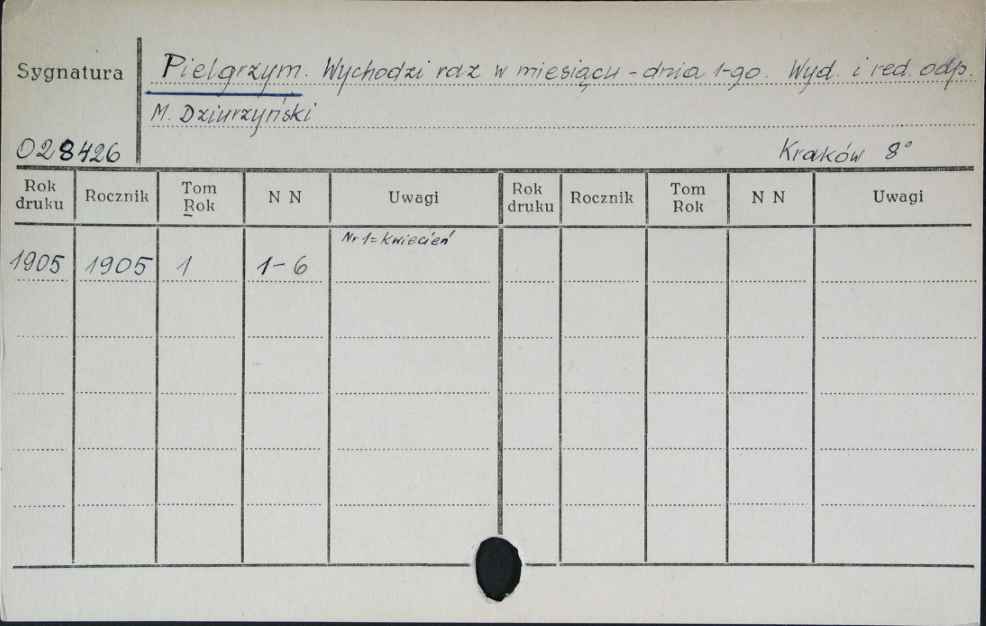 Sygnatura
Pielgrzym. Wychodzi raz w miesiącu - dnia 1-go. Wyd. i red. odp.
M. Dziurzyński
028426
Kraków 8°
Rok druku Rocznik Tom Rok N N Uwagi Rok druku Rocznik Tom Rok N N Uwagi
Nr 1 = kwiecień
1905 1905 1 1-6